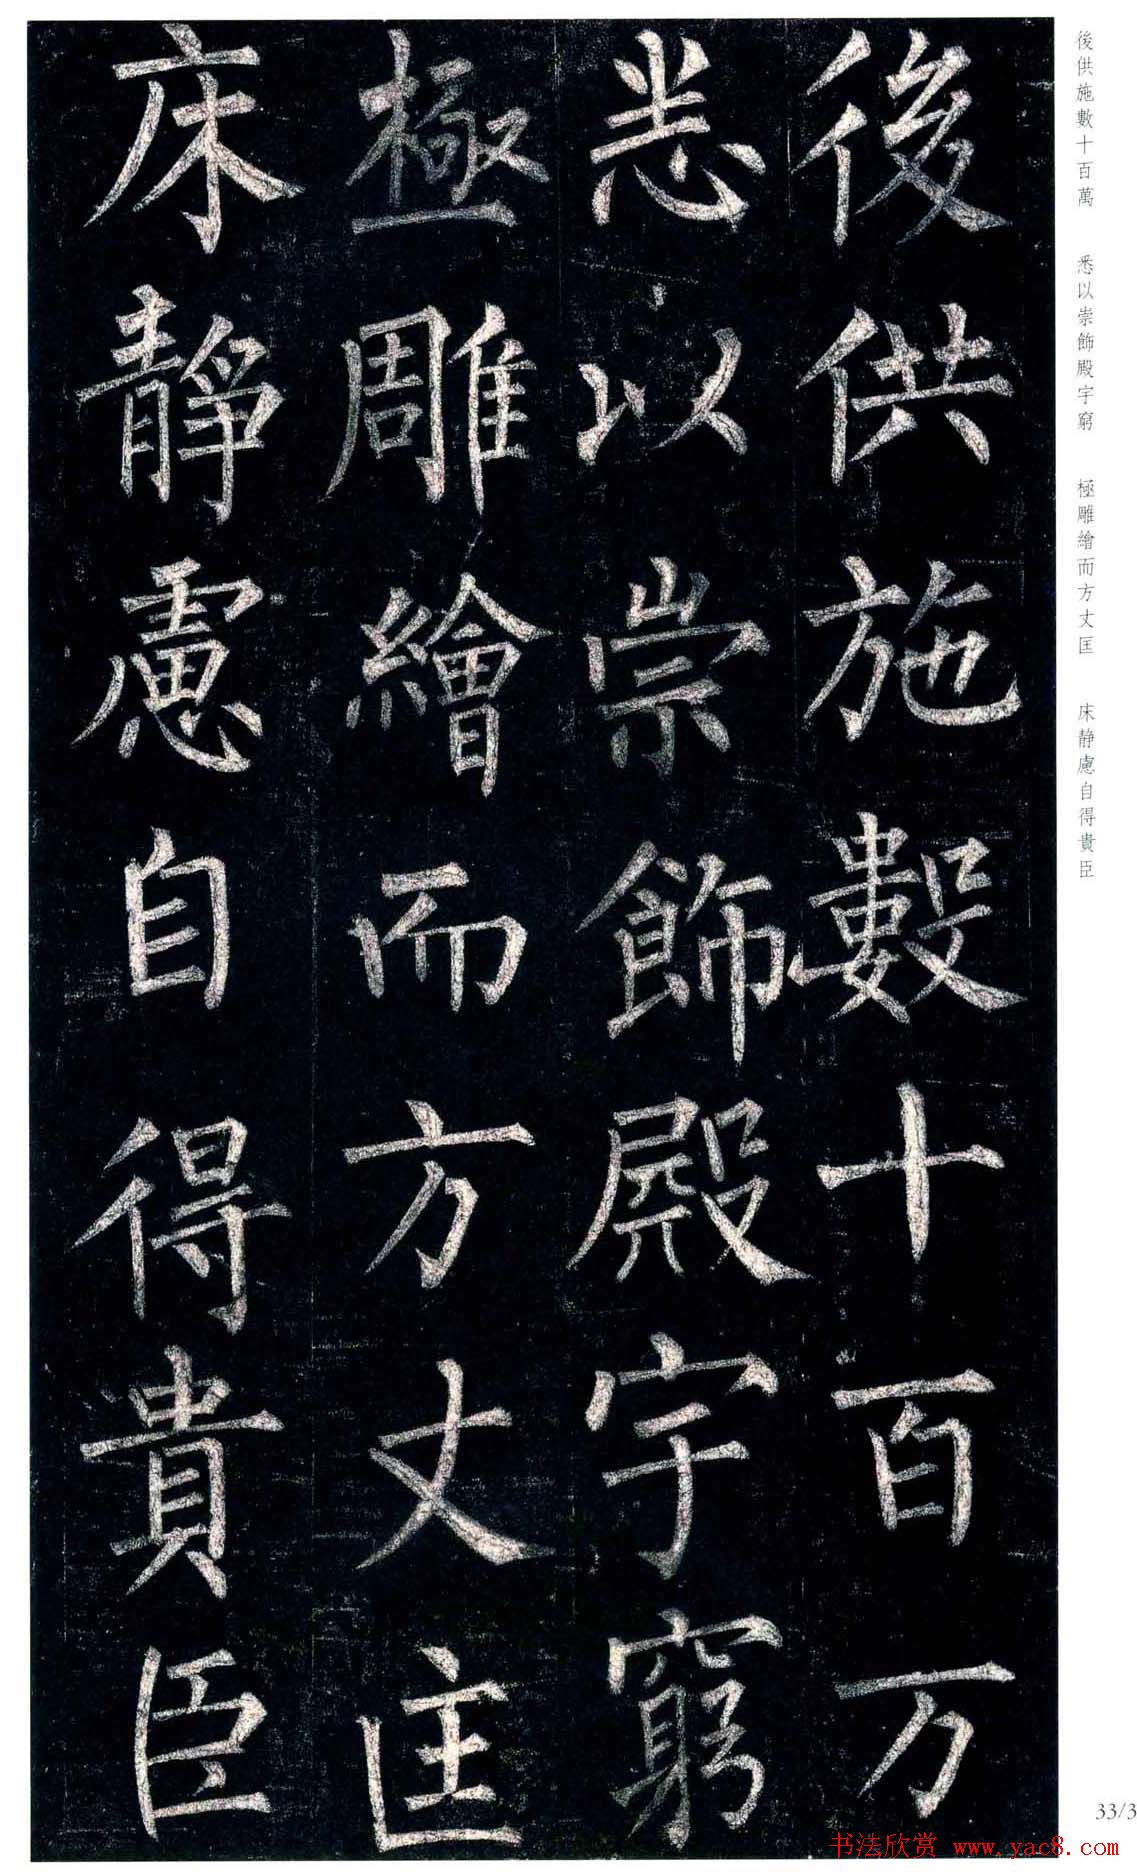 後供施數十百万
悉以崇飾殿宇窮
極雕繪而方丈匡
床靜慮自得貴臣
後供施數十百萬 悉以崇飾殿宇窮 極雕繪而方丈匡 床静慮自得貴臣
33/3
书法欣赏 www.yac8.com